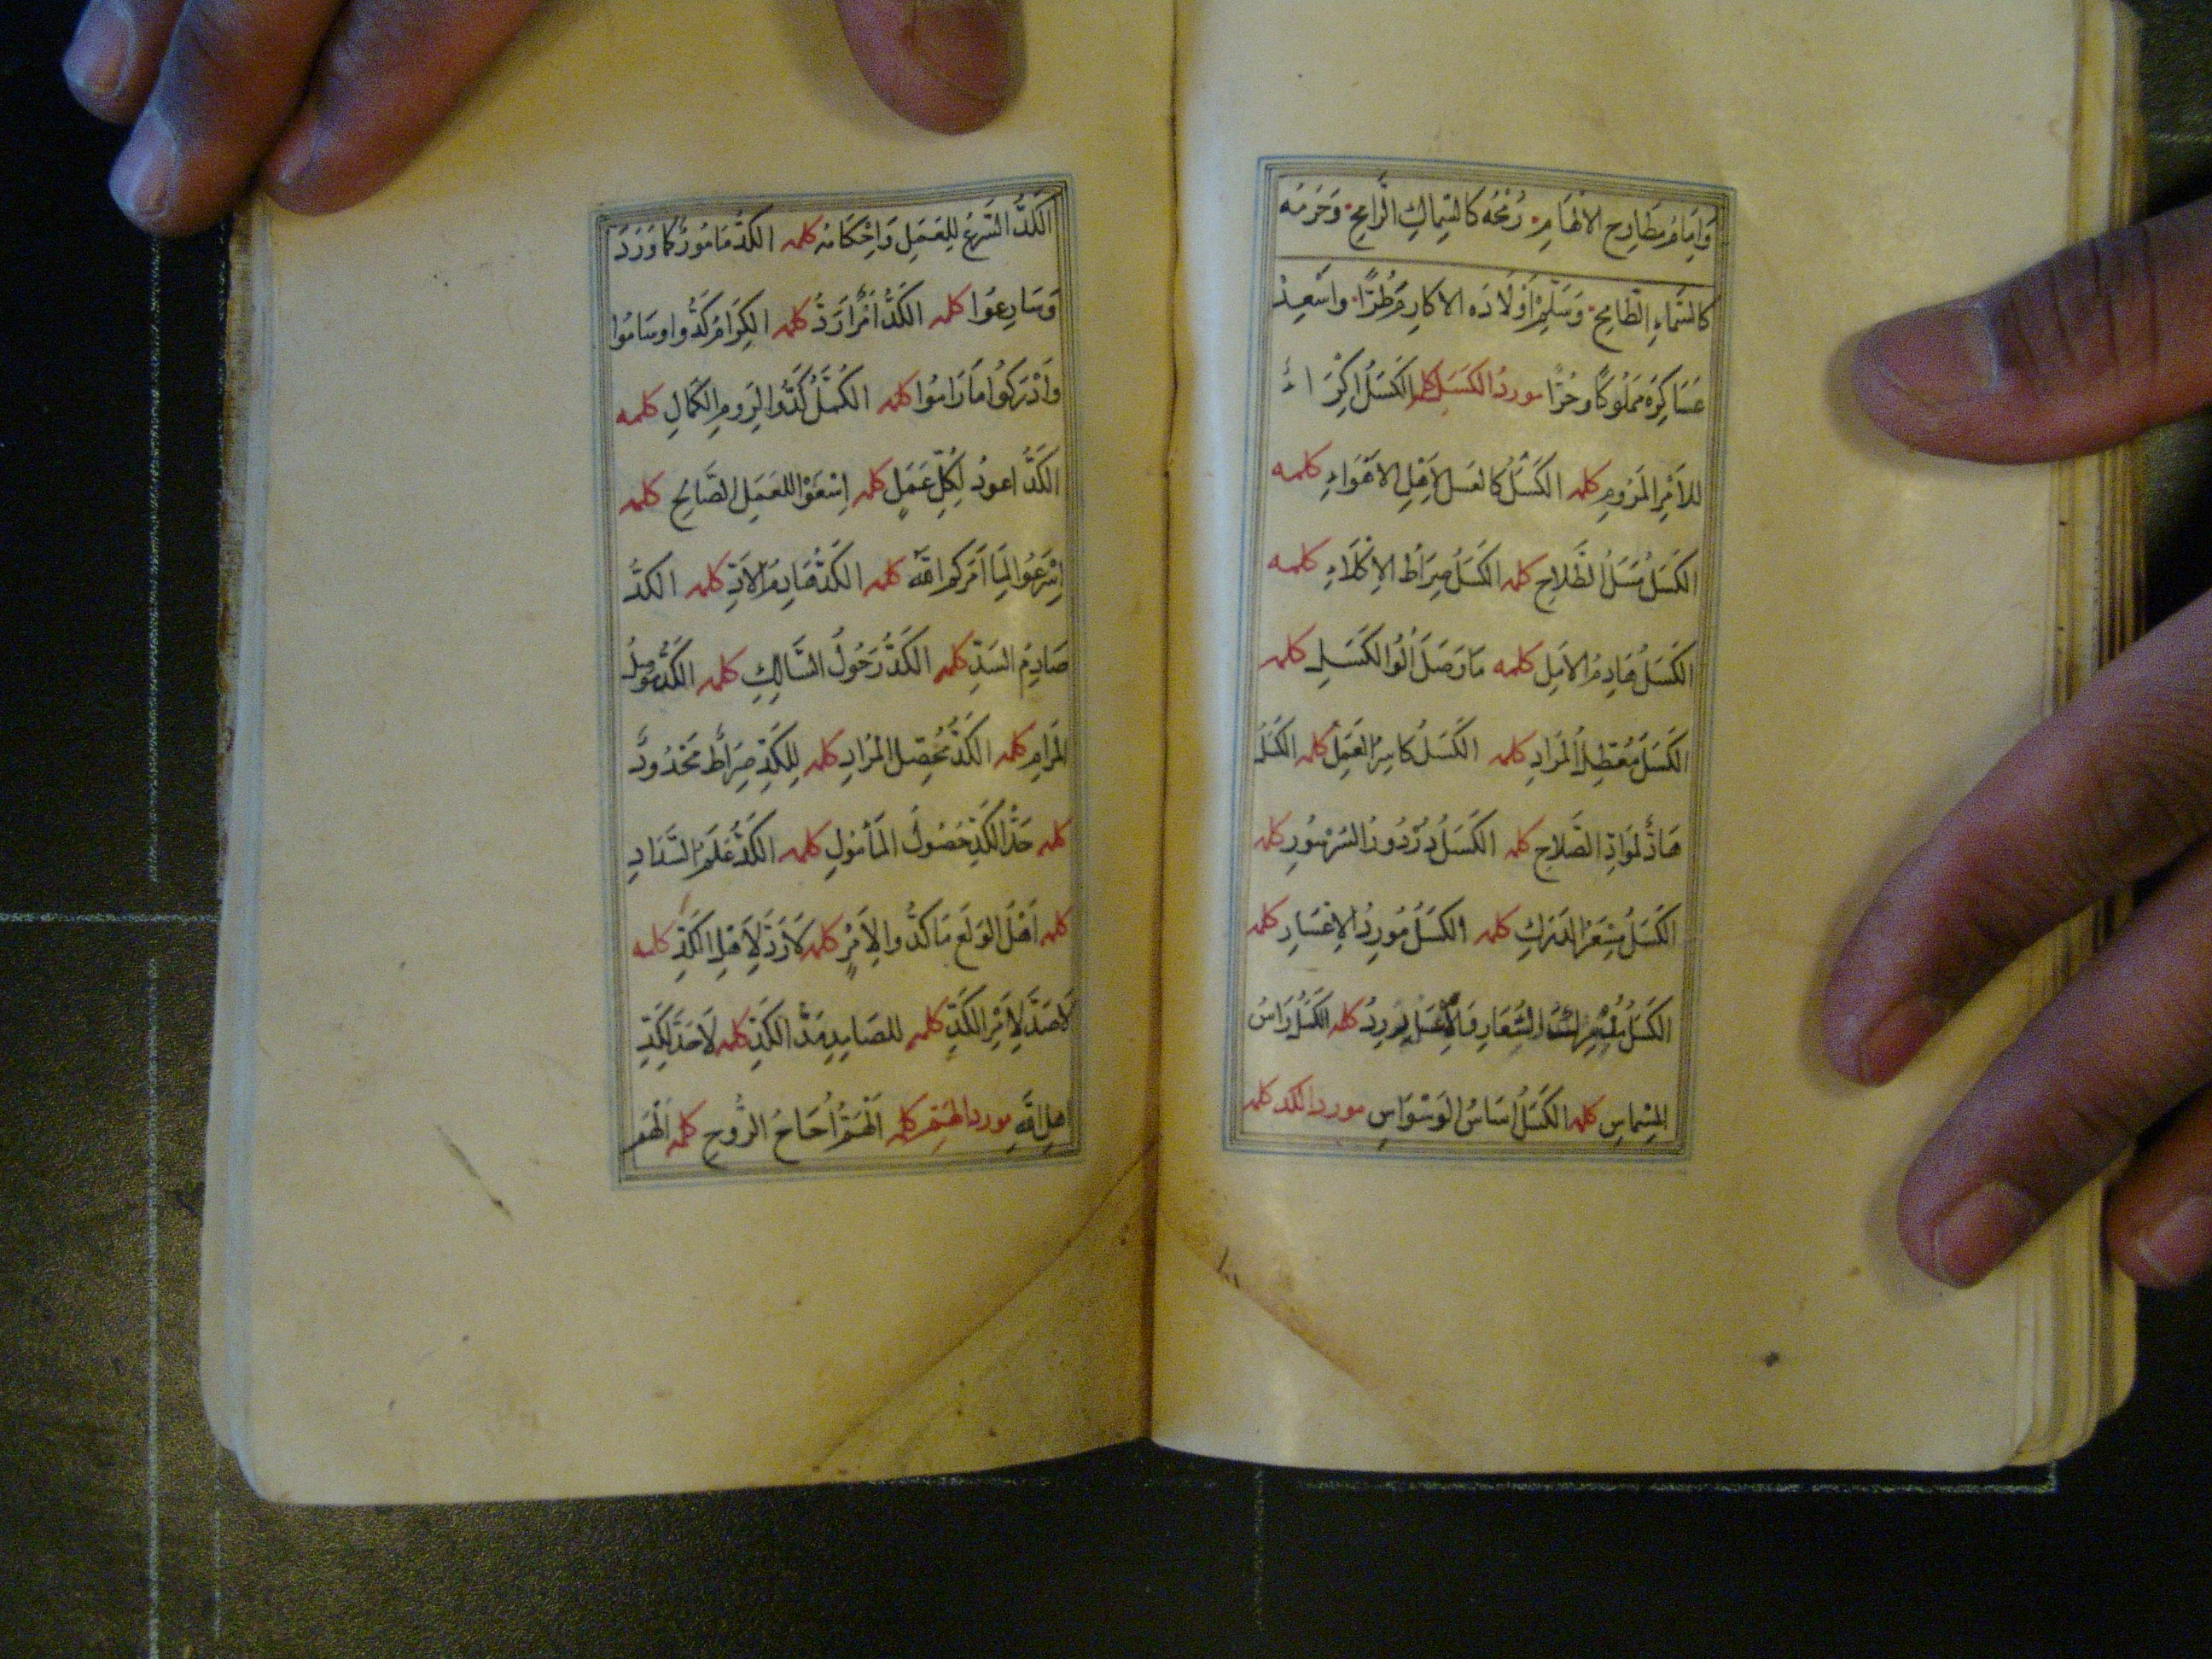 وَاِمَامُ مَطَارِحِ الاِلْهَامِ رُمْحُهُ كَالسِّمَاكِ الرَّامِحِ وَحَرَمُهُ
كَالسَّمَاءِ الطَّامِحِ وَسَلِّمْ اَوْلَادَهُ الاكَارِمَ طُرًّا وَاَسْعِدْ
عَسَاكِرَهُ مَمْلُوكًا وَحُرًّا مورد الكسل كلمه الكَسَلُ اِكْرَاءٌ
للاَمْرِ المَرُومِ كلمه الكَسَلُ كَالعَسَلِ لِاَهْلِ الاَهْوَاءِ كلمه
الكَسَلُ مَسَلُ الطَّلَاحِ كلمه الكَسَلُ صِرَاطُ الاِكْلَاءِ كلمه
الكَسَلُ هَادِمُ الاَمَلِ كلمه مَا وَصَلَ اُولُوا الكَسَلِ كلمه
الكَسَلُ مُعَطِّلُ المُرَادِ كلمه الكَسَلُ كَاسِرُ العَمَلِ كلمه الكَسَلُ
هَادٌّ الصَّلَاحِ كلمه الكَسَلُ دُرْدُورُ السُرْسُورِ كلمه
الكَسَلُ مِسْعَرُ الدَرَكِ كلمه الكَسَلُ مُورِدُ الاِعْسَارِ كلمه
الكَسَلُ كلمه الكَسَلُ رَاسُ
المِسْمَاسِ كلمه الكَسَلُ اسَاسُ الوَسْوَاسِ مورد الكد كلمه
الكَدُّ السَّرَعُ لِلعَمَلِ وَاِحْكَامُهُ كلمه الكَدُّ مَامُورٌ كَمَا وَرَدَ
وَسَارِعُوا كلمه الكَدُّ اَمْرٌ اَرَدُّ كلمه الكِرَامُ كَدُّوا وسَامُوا
وَاَدْرَكُوا مَا رَامُوا كلمه الكُمَّلُ كَدُّوا لِرَومِ الكَمَالِ كلمه
الكَدُّ اعودُ لِكُلِّ عَمَلٍ كلمه اِسْعَوْا للعَمَلِ الصَّالِحِ كلمه
اِسْرَعُوا لِمَا اَمَرَكُم اللّٰهُ كلمه الكَدُّ هَادِمُ الاَدِّ كلمه الكَدُّ
صَادِمُ السَدِّ كلمه الكَدُّ رَحُولُ السَّالِكِ كلمه الكَدُّ مُوصِلُ
المَرَامِ كلمه الكَدُّ مُحَصِّلُ المُرَادِ كلمه لِلكَدِّ صِرَاطٌ مَحْدُودٌ
كلمه حَدُّ الكَدِّ حُصُولُ المَأمُولِ كلمه الكَدُّ عَلَمُ السَّدَادِ
كلمه اَهْلُ الوَلَعِ مَا كَدُّوا لِاَمْرٍ كلمه لَا رَدَّ لِاَهْلِ الكَدِّ كلمه
لَا صَدَّ لِاَمْرِ الكَدِّ كلمه للصَامِدِ مَدُّ الكَدِّ كلمه لَا حَدَّ لِكَدِّ
اهلِ اللّٰهِ مورد الهَمّ كلمه اَلْهَمُّ اُحَاحُ الرُّوحِ كلمه اَلْهَمُّ